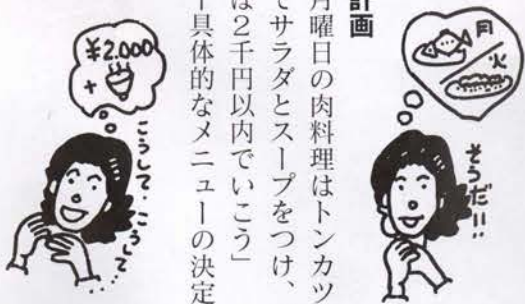 月
火
そうだ!!
計画
月曜日の肉料理はトンカツ
でサラダとスープをつけ、
は2千円以内でいこう」
具体的なメニューの決定
¥2.000
+
こうして、こうして…